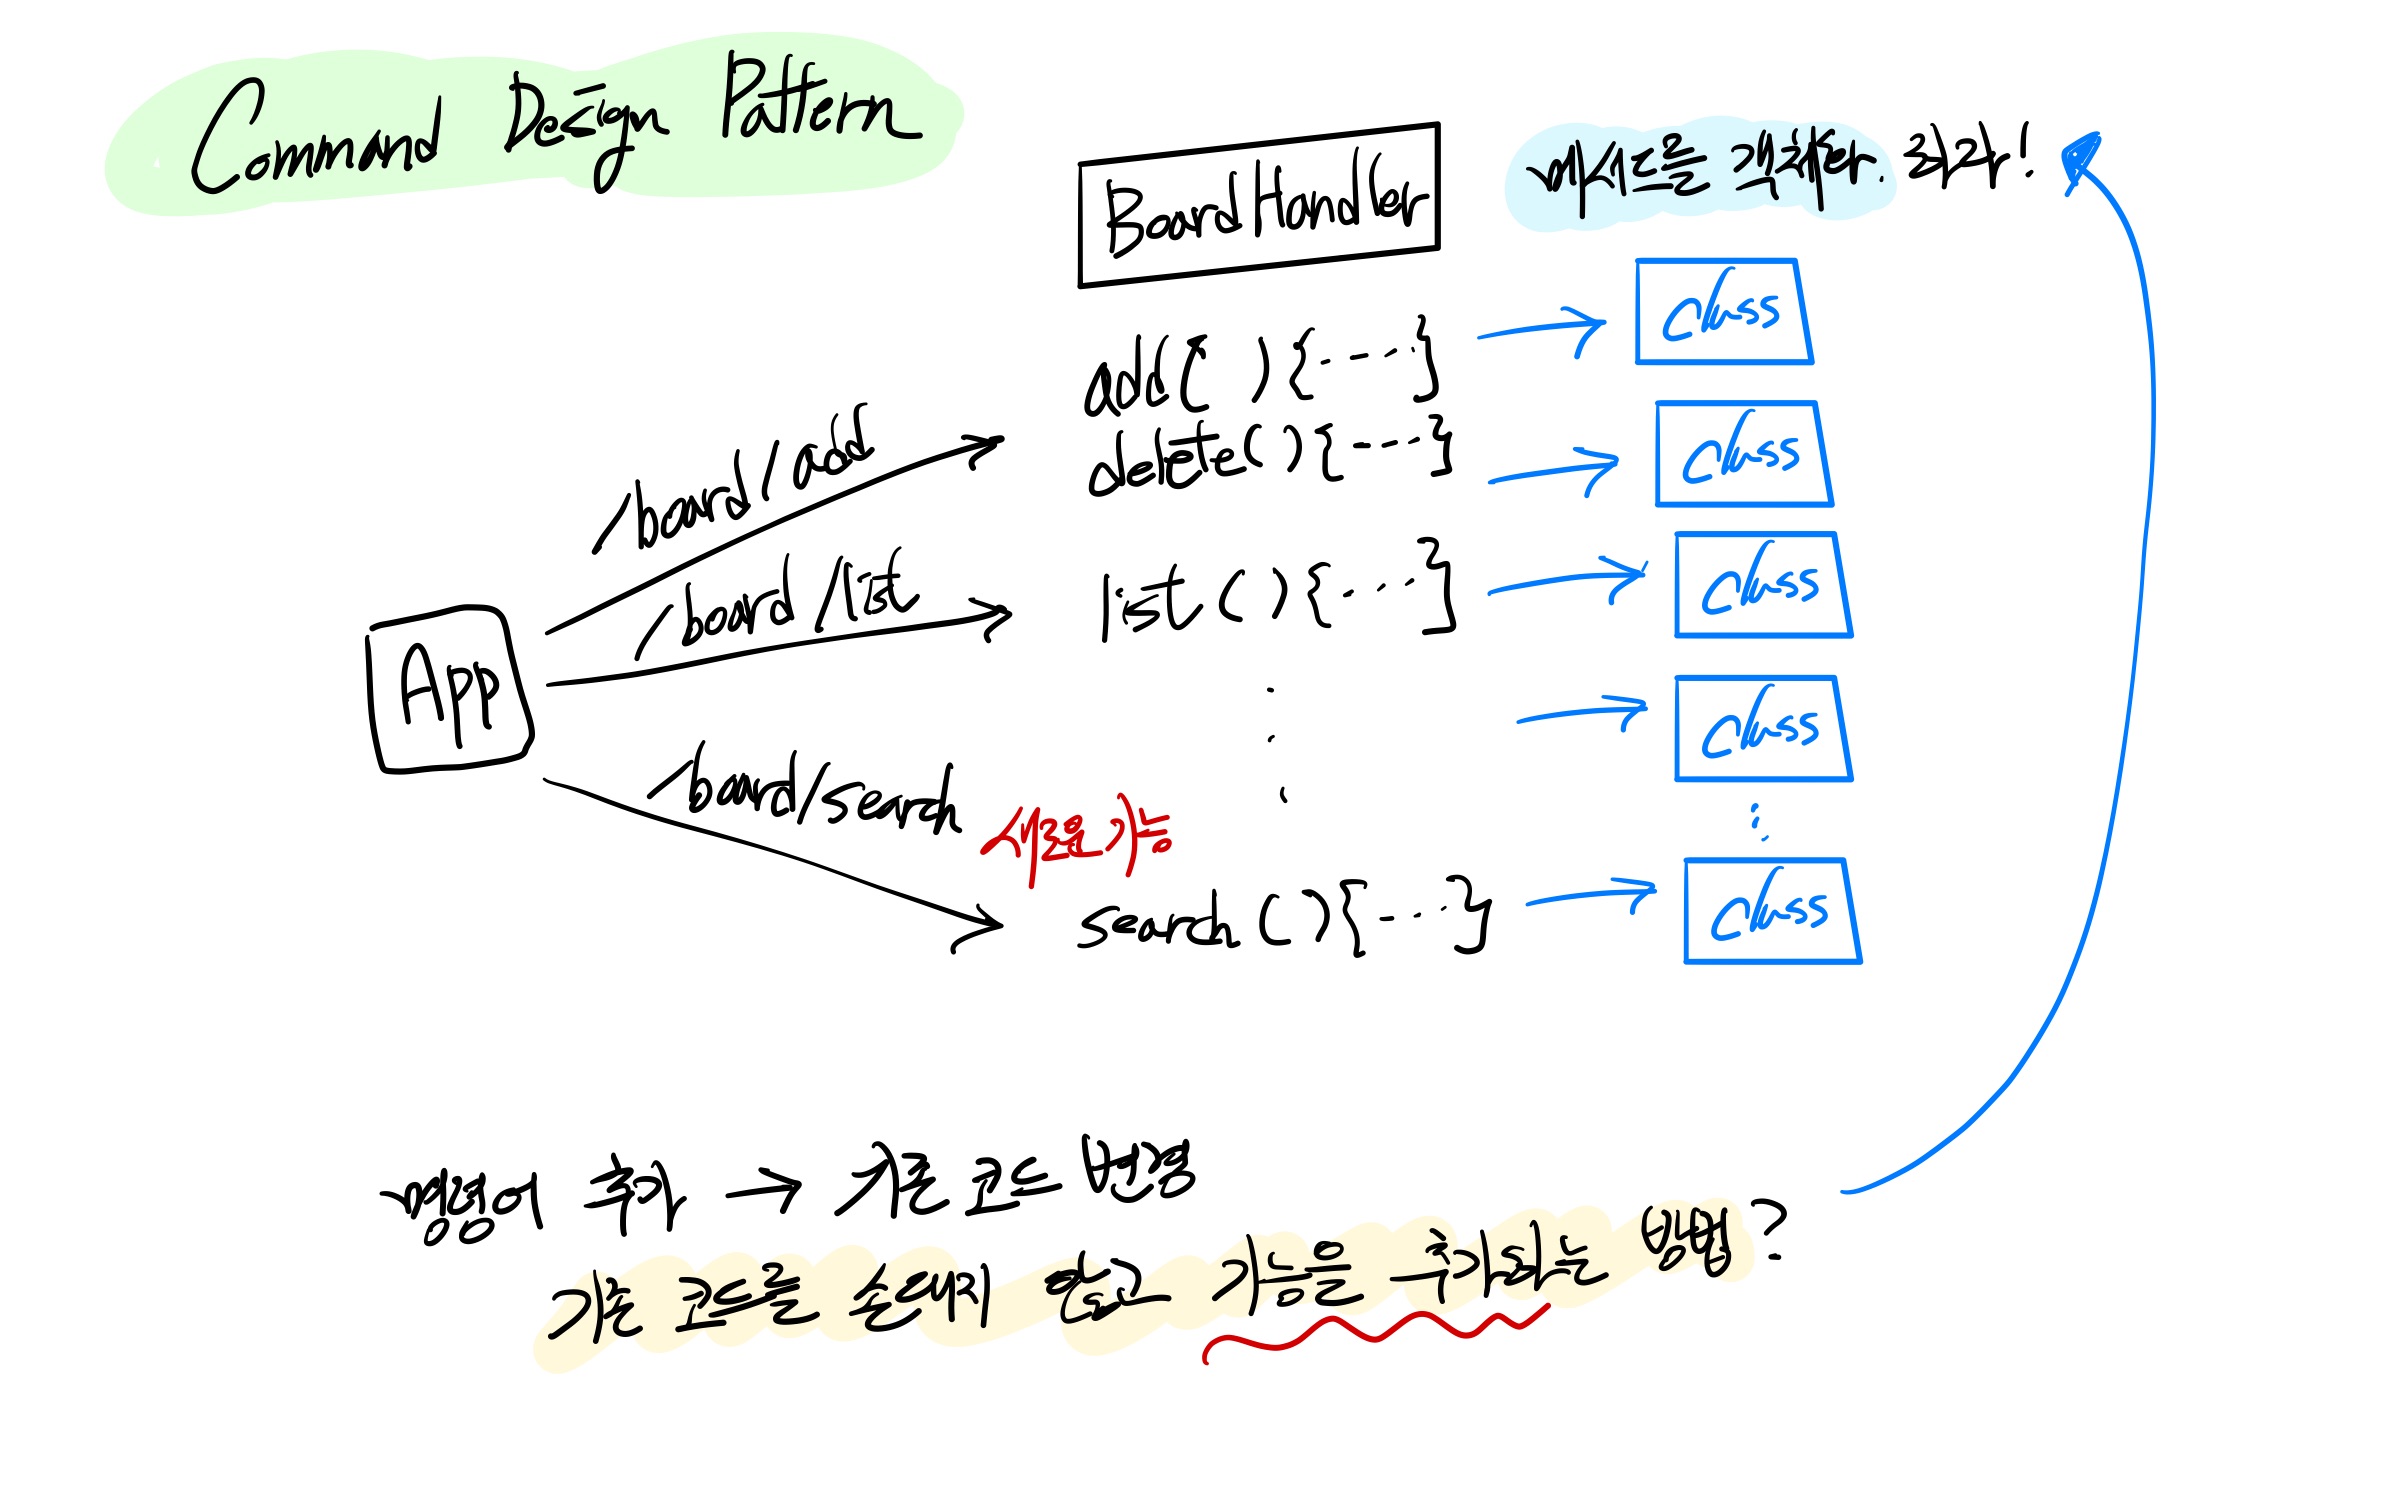 Command Design Pattern
BoardHandler
메서드를 객체화. 하자!
add( ){----}
Class
delete( ){----}
Class
/board/add
list( ){----}
Class
/board/list
App
Class
/board/search
새로운 기능
search( ){----}
Class
명령어 추가 → 기존 코드 변경
기존 코드를 손대지 않고 기능을 추가하는 방법?